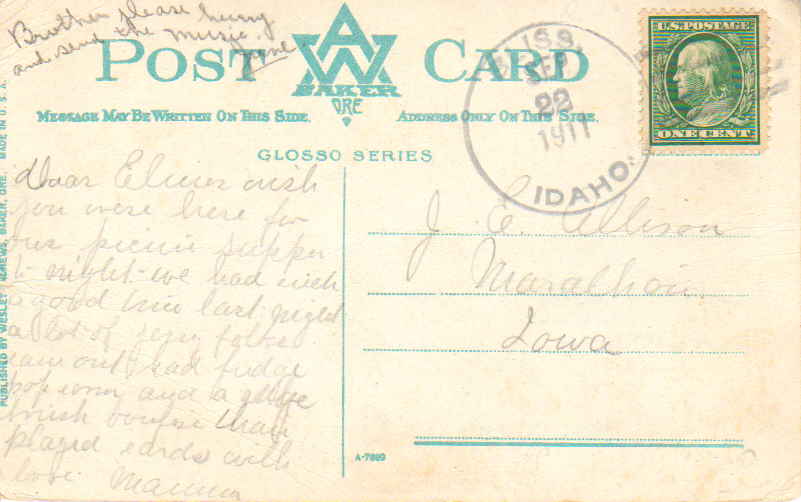 Brother please hurry
and send the music.
POST CARD
AW
BAKER
ORE
MESSAGE MAY BE WRITTEN ON THIS SIDE.
ADDRESS ONLY ON THIS SIDE.
GLOSSO SERIES
ISS
SEP
22
1911
IDAHO.
U.S. POSTAGE
ONE CENT
Dear Elmer wish
you were here for
our picnic supper
to night - we had such
a good time last night
a lot of folks
came out had fudge
pop corn and a
played cards with
love Mamma
J. E. Allison
Marathon
Iowa
A-7889
PUBLISHED BY WESLEY ANDREWS, BAKER, ORE. MADE IN U.S.A.